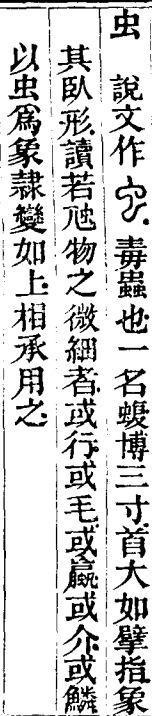 虫 說文作 毒蟲也一名蝮博三寸首大如擘指象
其臥形讀若虺物之微細者或行或毛或蠃或介或鱗
以虫爲象隸變如上相承用之